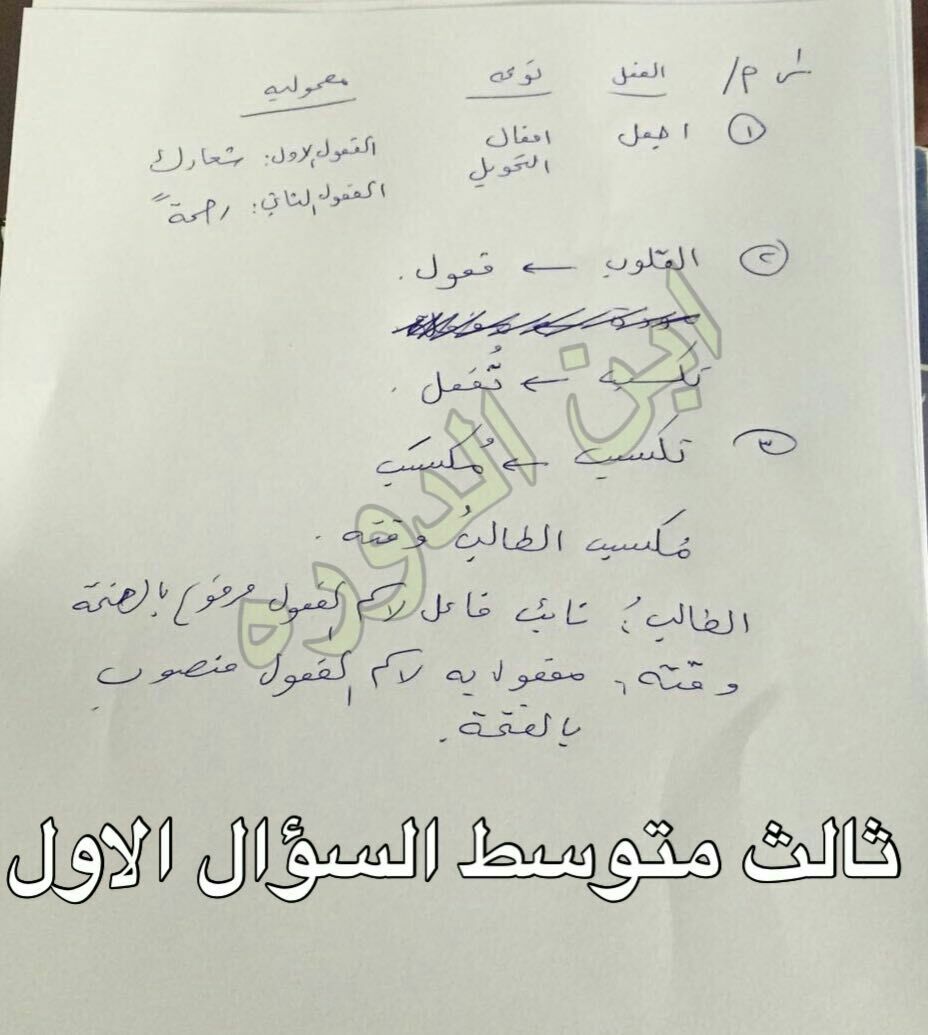 س ١/ الفعل نوعه معموليه
① اجعل افعال التحويل المفعول الاول: شعارك
المفعول الثاني: رحمةً
② القلوب ← فعول.
تكسب ← تُفعل.
③ تكسب ← مُكسَب
مُكسب الطالبُ وقته.
الطالبُ: نائب فاعل لاسم المفعول مرفوع بالضمة
وقته: مفعول به لاسم المفعول منصوب
بالفتحة.
ابن الدوره
ثالث متوسط السؤال الاول